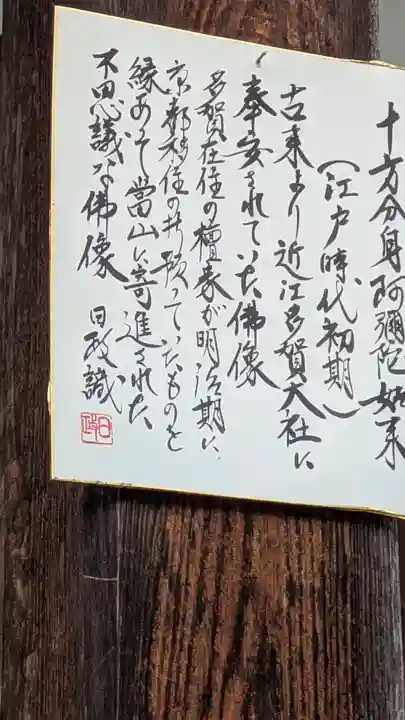 十方分身阿彌陀如来
(江戸時代初期)
古来より近江多賀大社に
奉安されていた佛像
多賀在住の檀家が明治期に
京都移住の折預っていたものを
縁あって當山に寄進された
不思議な佛像 日政識
日政